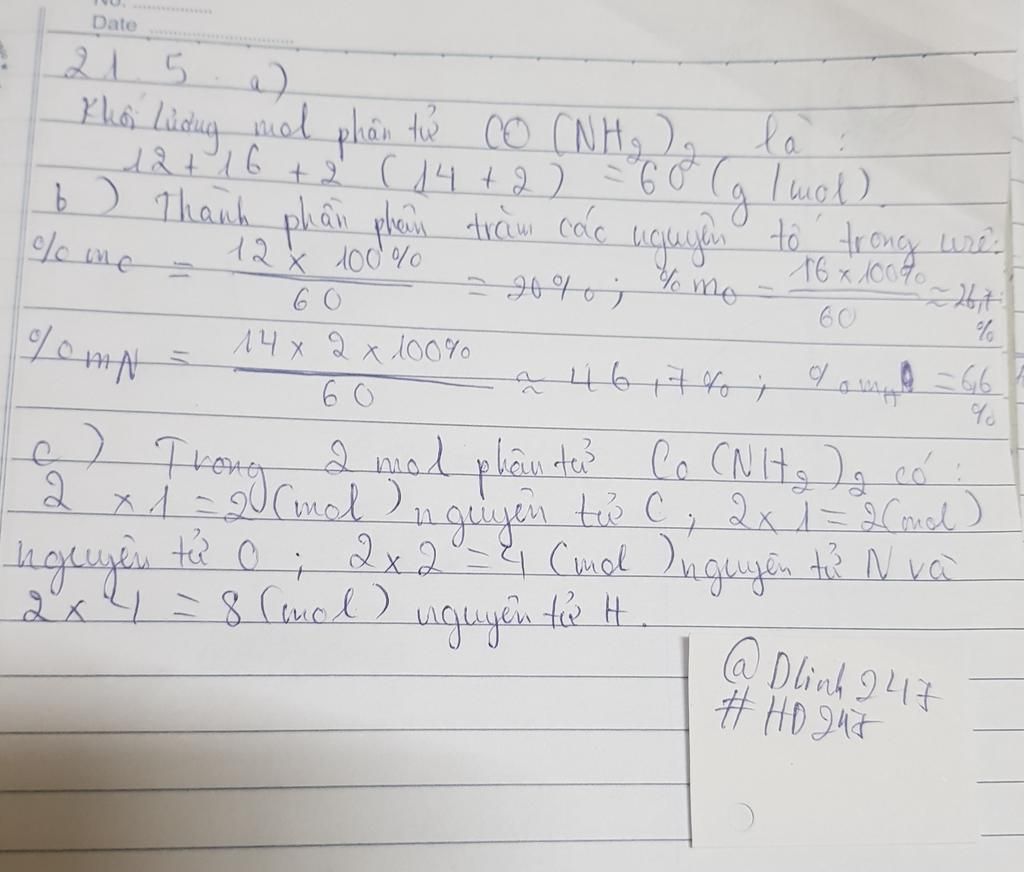 No. ..................
Date ..............................
21.5. a)
Khối lượng mol phân tử CO(NH2)2 là:
12 + 16 + 2 (14 + 2) = 60 (g/mol).
b) Thành phần phần trăm các nguyên tố trong urê:
%mC = 12 x 100% / 60 = 20%; %mO = 16 x 100% / 60 ≈ 26,7%
%mN = 14 x 2 x 100% / 60 ≈ 46,7%; %mH = 6,6%
c) Trong 2 mol phân tử Co(NH2)2 có:
2 x 1 = 2 (mol) nguyên tử C; 2 x 1 = 2 (mol)
nguyên tử O; 2 x 2 = 4 (mol) nguyên tử N và
2 x 4 = 8 (mol) nguyên tử H.
@Dlinh247
#HD247